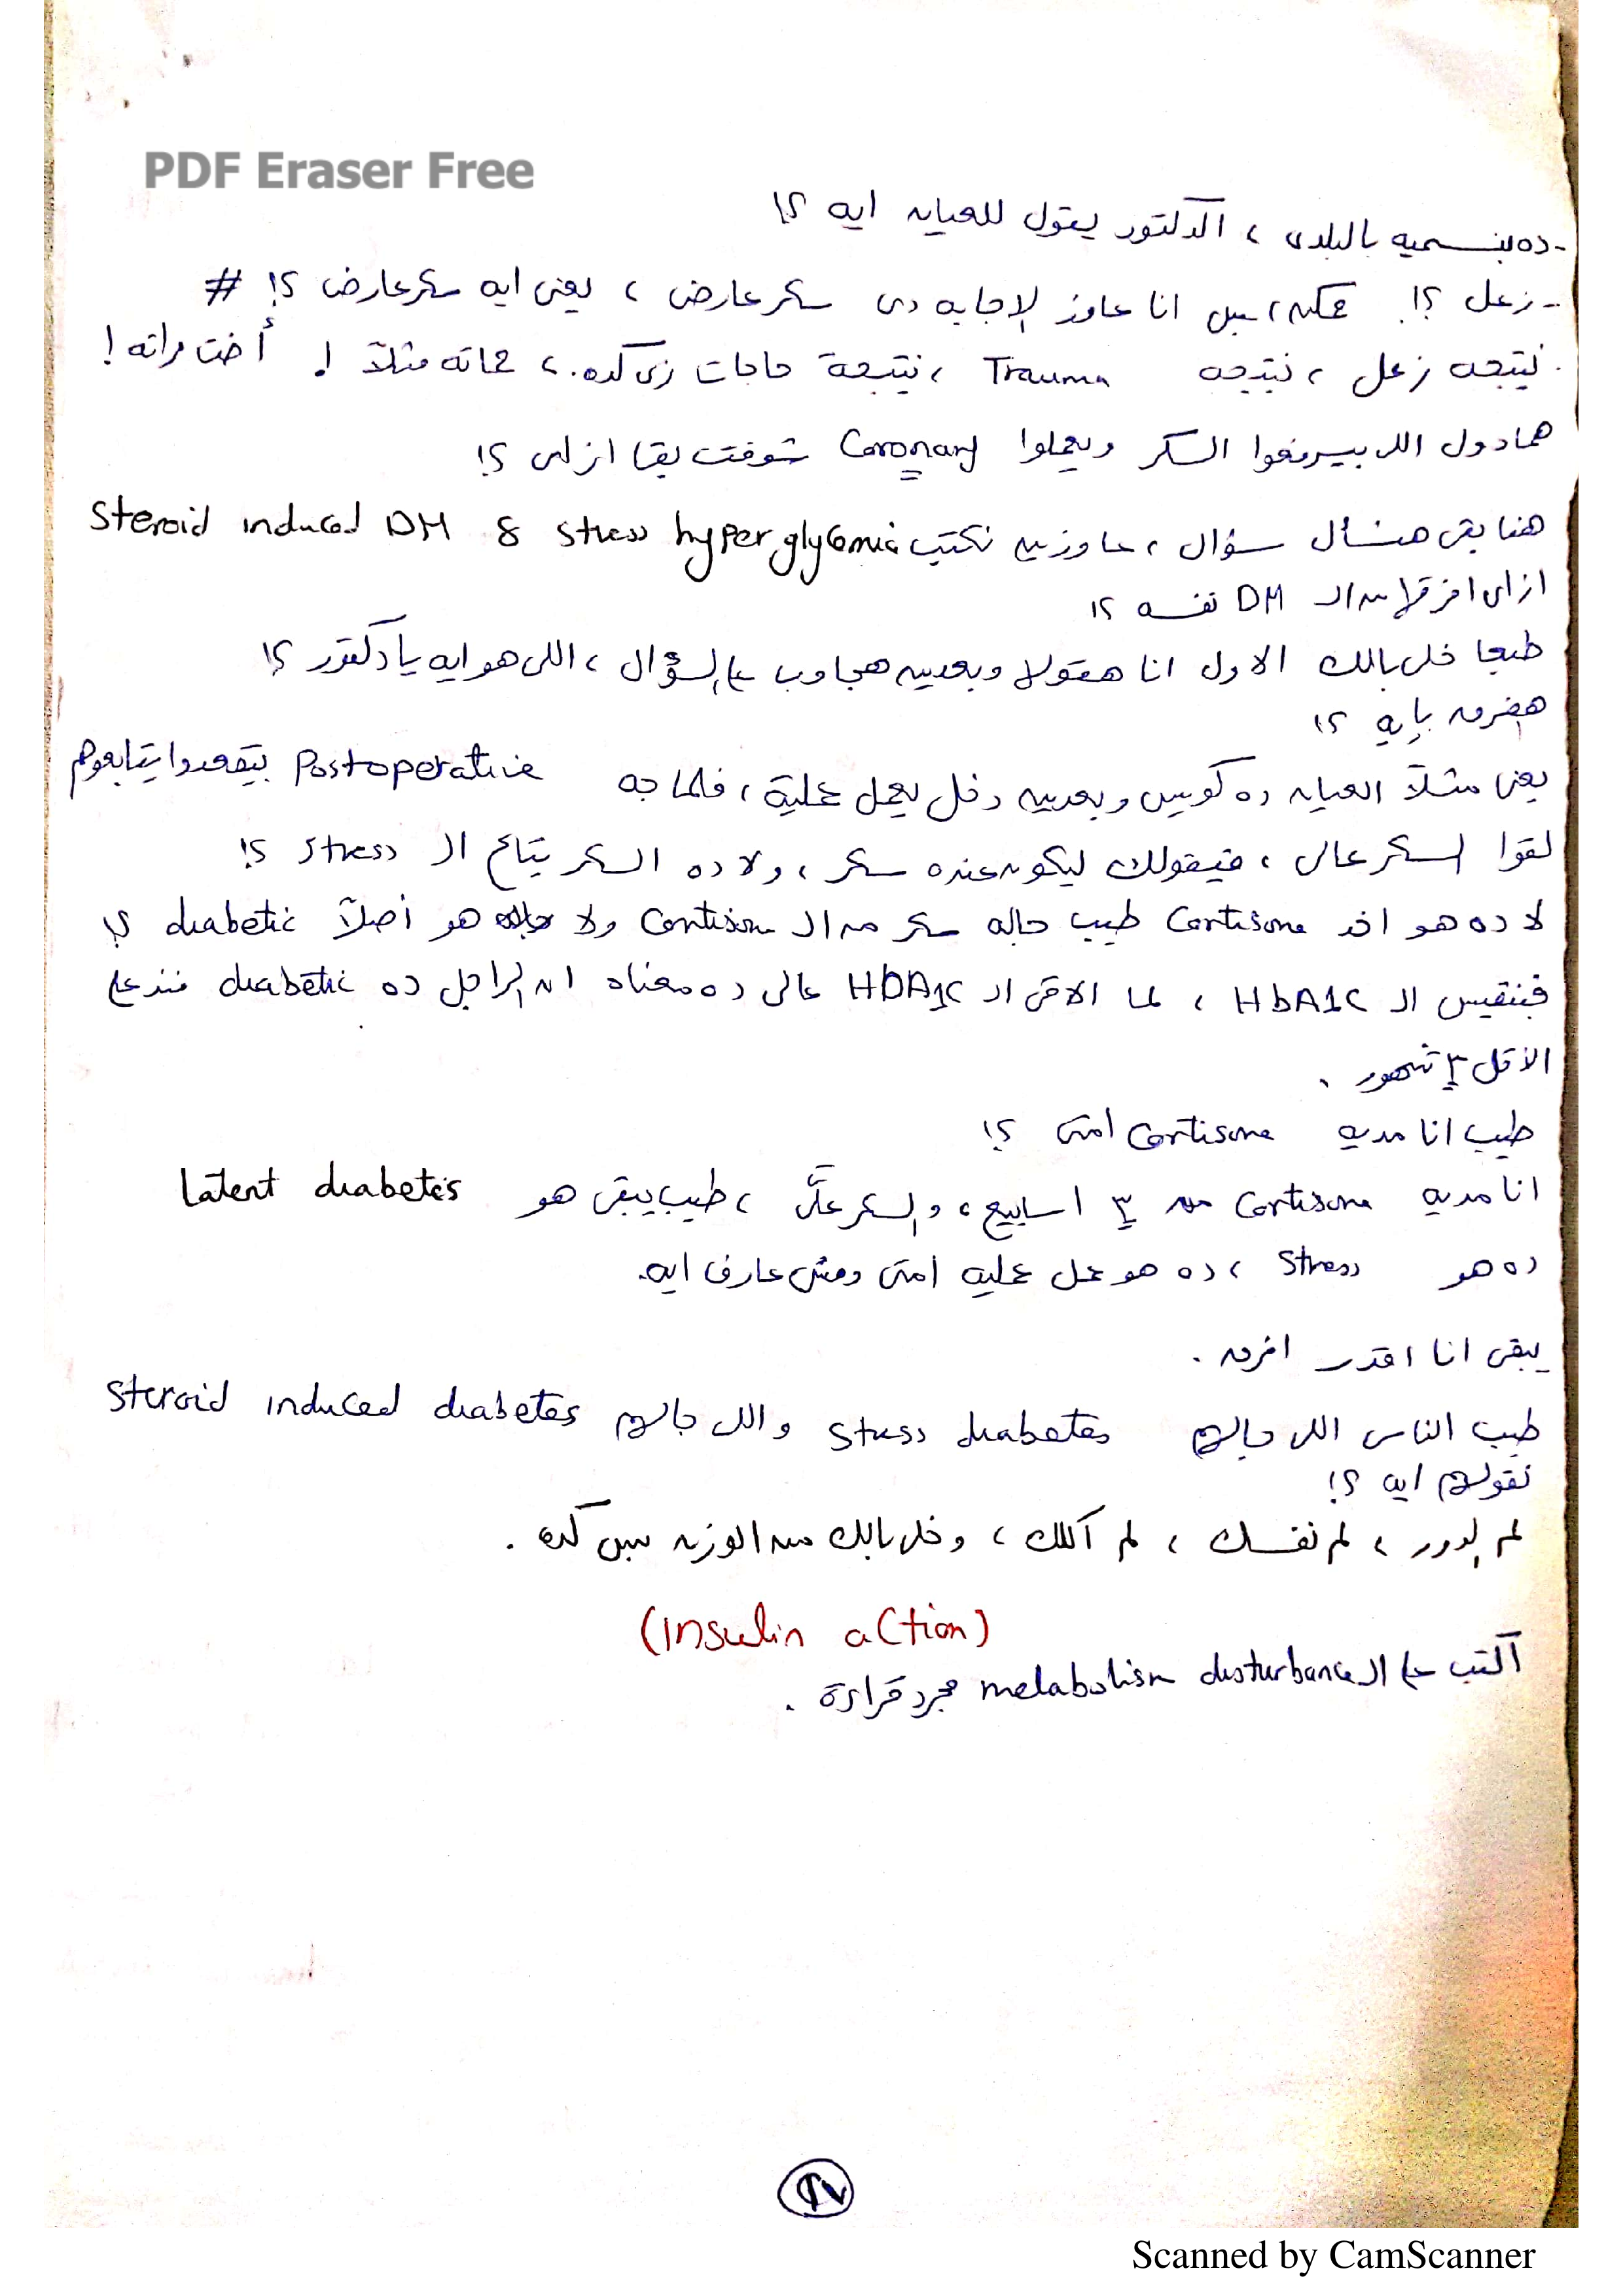 PDF Eraser Free
- ده بنسميه بالبلدى ، الدكتور يقول للعيان ايه ؟!
- زعل ؟! ممكن ، بس انا عاوز الاجابه دى سكر عارض ، يعنى ايه سكر عارض ؟! #
نتيجه زعل ، نتيجه Trauma ، نتيجة حاجات زى كده . ، حماته مثلاً ! أخت مراته !
هما دول اللى بيرفعوا السكر ويعملوا Coronary شوفت بقا ازاى ؟!
هنا بقى هنسأل سؤال ، عاوزين نكتب Steroid induced DM & stress hyperglycemia
ازاى افرقها من الـ DM نفسه ؟!
طبعا خلى بالك الاول انا هقولها وبعدين هجاوب على السؤال ، اللى هو ايه يا دكتور ؟!
هفرق بإيه ؟!
يعنى مثلاً العيان ده كويس وبعدين دخل يعمل عملية ، فلما جه Postoperative بيقعدوا يتابعوهم
لقوا السكر عالى ، فيقولك ليكون عنده سكر ، ولا ده السكر بتاع الـ stress ؟!
لا ده هو اخد Cortisone طيب جاله سكر من الـ Cortisone ولا هو أصلاً diabetic ؟!
فبنقيس الـ HbA1C ، لما الاقى الـ HbA1C عالى ده معناه ان الراجل ده diabetic منذ على
الأقل ٣ شهور .
طيب انا مديه Cortisone امتى ؟!
انا مديه Cortisone من ٣ اسابيع ، والسكر علىّ ، طيب يبقى هو Latent diabetes
ده هو Stress ، ده هو عمل عمليه امتى ومش عارف ايه .
يبقى انا اقدر افرق .
طيب الناس اللى جالهم stress diabetes واللى جالهم Steroid induced diabetes
نقولهم ايه ؟!
لم الدور ، لم نفسك ، لم أكلك ، وخلى بالك من الوزن بس كده .
(Insulin action)
اكتب على الـ metabolism disturbance مجرد قراءة .
٩٧
Scanned by CamScanner